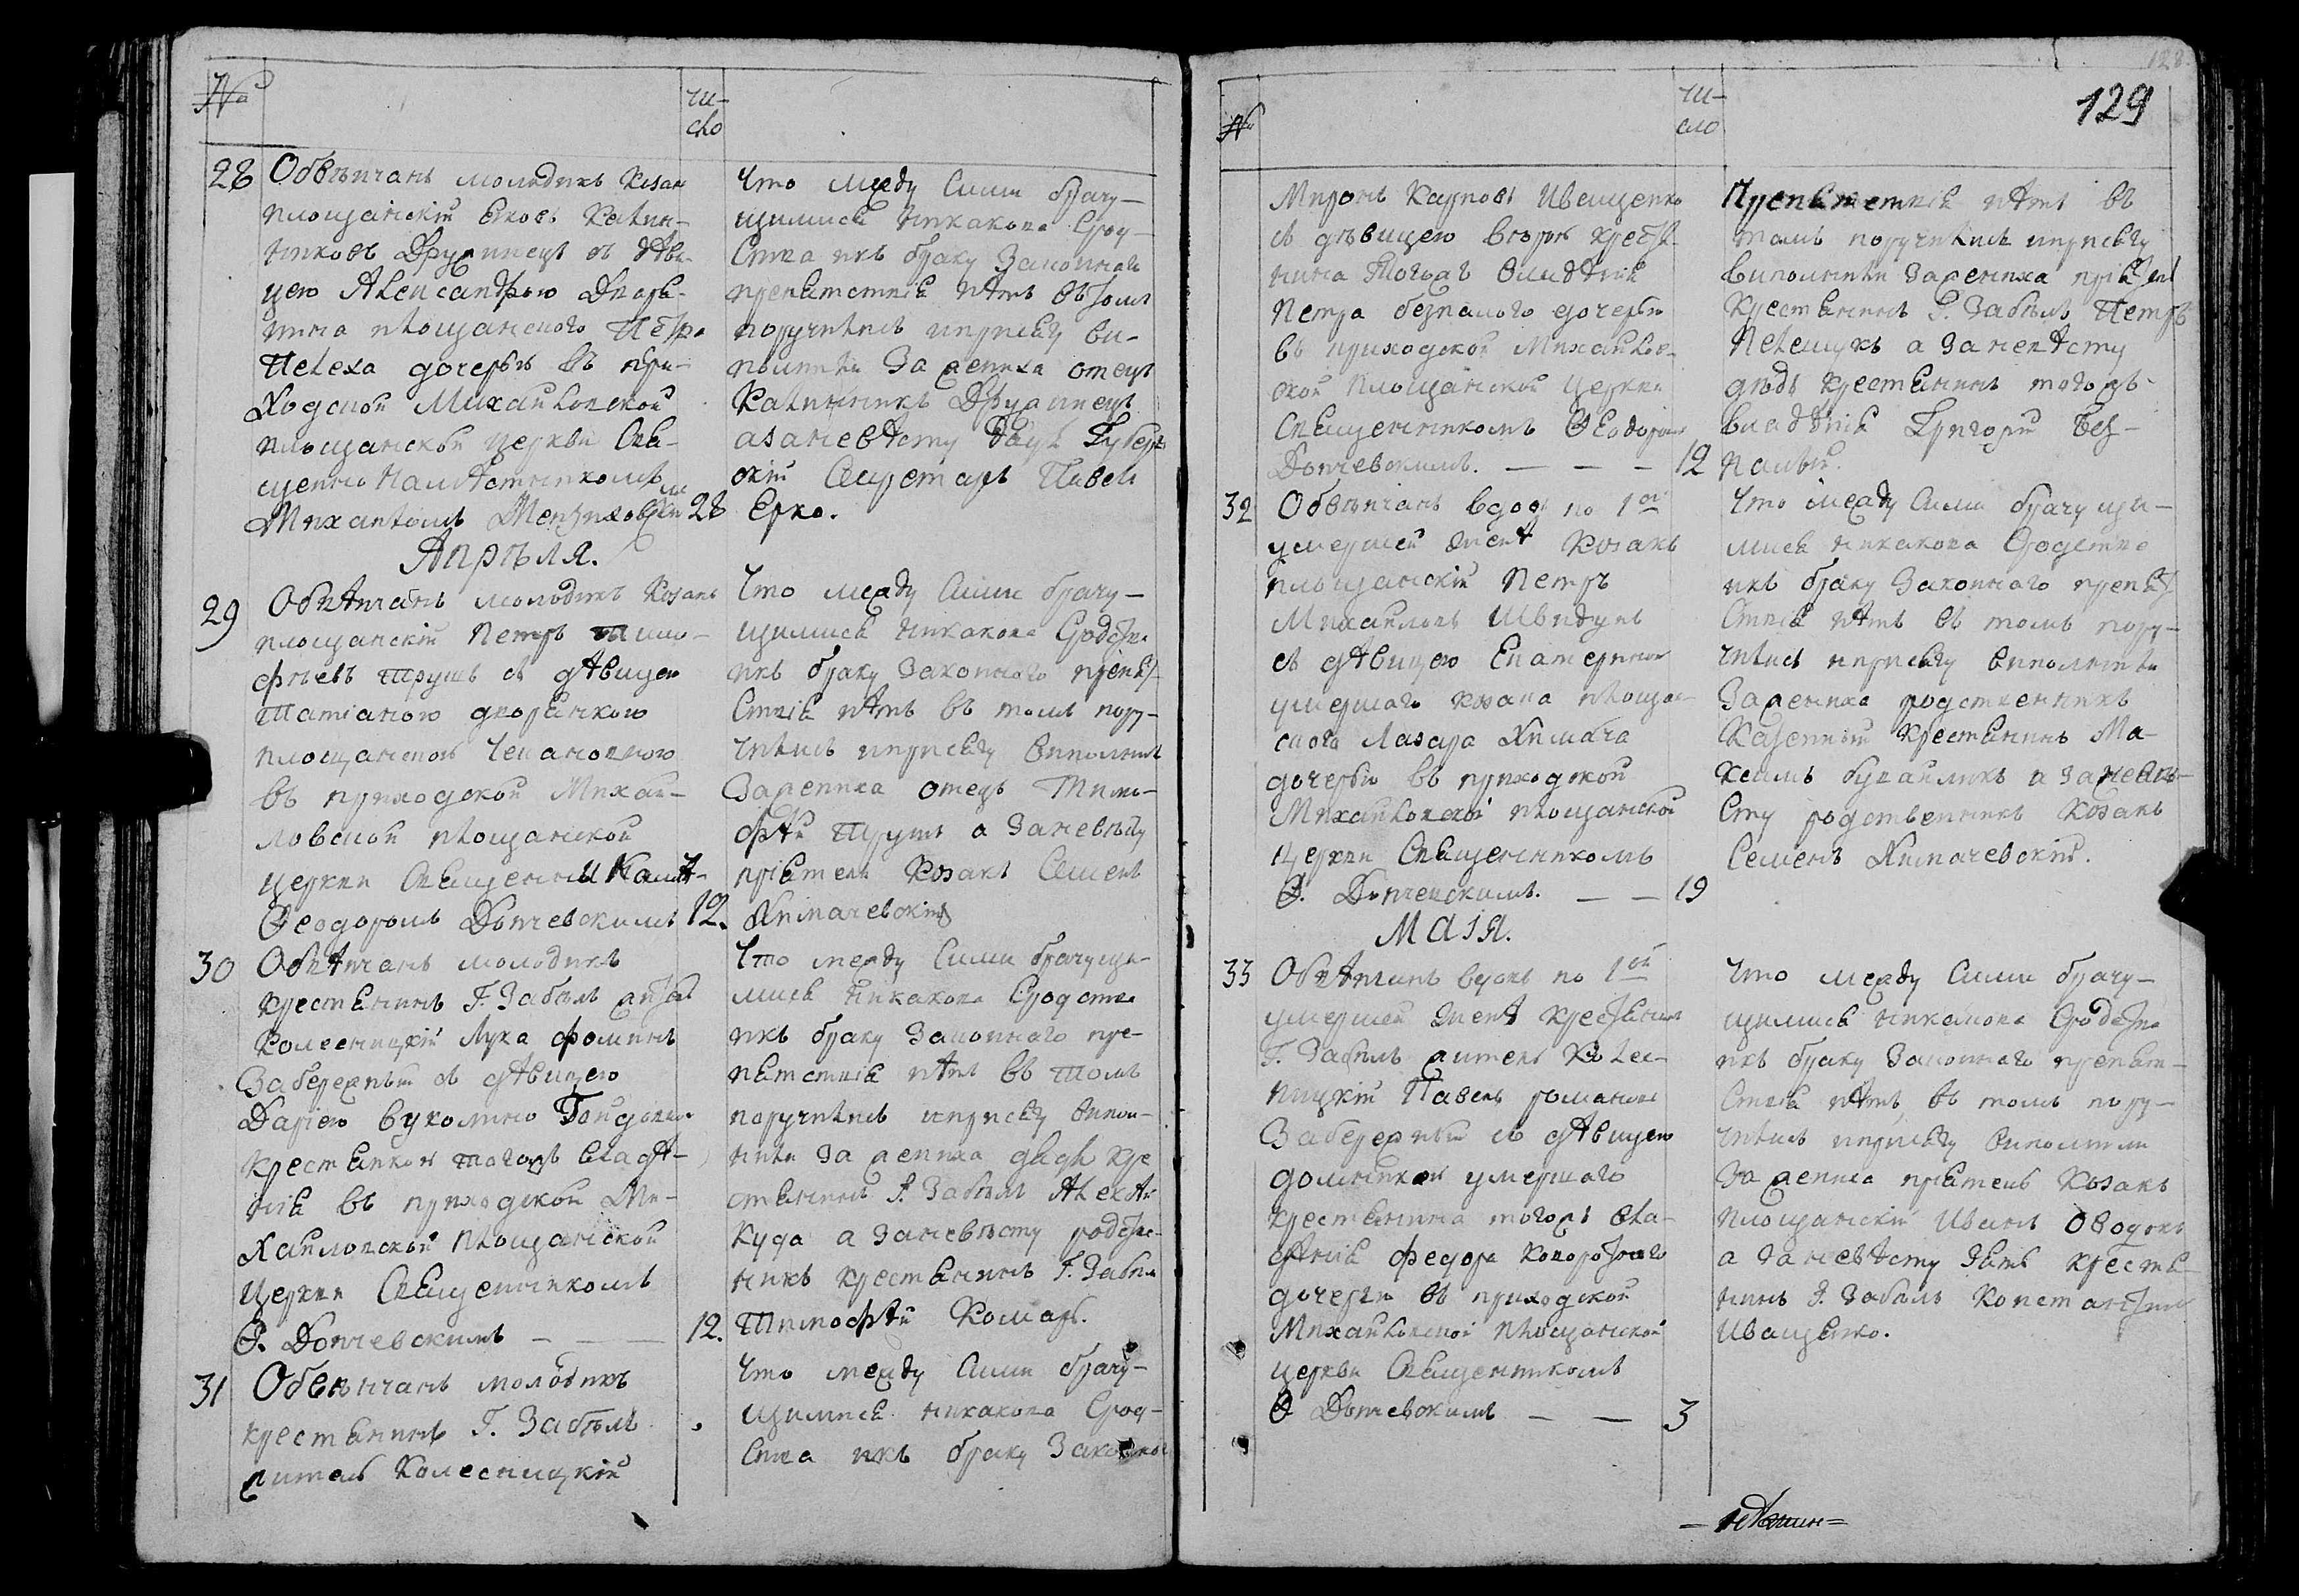 №
чи-
сло
28 Обвѣнчанъ молодикъ Козакъ
площанскій Яковъ Калин-
никовъ Друпинецъ съ дѣви-
цею Александрою Дворя-
нина площанского Петра
Пелеха дочерью въ при-
ходской Михайловской
площанской церкви Свя-
щенно Намѣстникомъ
Михаиломъ 28
Что между сими брачу-
щимися никакова срод-
ства икъ браку законнаго
препятствія нѣтъ въ томъ
поручились иприсягу ви-
полнили За жениха отецъ
Калинникъ Друпинецъ
азаневѣсту Губерн
скій Секретарь Павелъ
Ерко.
Апрѣля.
29 Обвѣнчанъ молодикъ Козакъ
площанскій Петръ Тимо-
фѣевъ Трушъ съ дѣвицею
Татіаною дворянкою
площанскою
въ приходской Михай-
ловской площанской
церкви Священни
Ѳеодоромъ Допчевскимъ 12.
Что между сими брачу-
щимися никакова сродства
икъ браку законнаго препят-
ствія нѣтъ въ томъ пору-
чились иприсягу виполнили
Зажениха отецъ Тимо-
фѣй Трушъ а заневѣсту
пріятель Козакъ Семенъ
Химачевскій
30 Обвѣнчанъ молодикъ
крестьянинъ Г. Забѣлъ житель
колесницкій Лука Фоминъ
Забережный съ дѣвицею
Даріею Вуколиною
крестьянкою тогожъ владѣ-
нія въ приходской Ми-
хайловской площанской
церкви Священникомъ
Ѳ. Допчевскимъ — — 12.
Что между сими брачущи-
мись никакова сродства
икъ браку законнаго пре-
пятствія нѣтъ въ томъ
поручились иприсягу випол-
нили за жениха дядя кре
стьянинъ Г. Забѣлъ Алексѣй
Куда а заневѣсту родстве-
никъ крестьянинъ Г. Забѣлъ
Тимофѣй Комаръ.
31 Обвѣнчанъ молодикъ
крестьянинъ Г. Забѣлъ
житель Колесницкій
Что между сими брачу-
щимися никакова срод-
ства икъ браку законног
128
129
№
чи-
сло
Миронъ Карповъ Иващенко
съ дѣвицею крестья-
нина тогожъ владѣнія
Петра безпалого дочерью
въ приходской Михайлов-
ской площанской церкви
Священникомъ Ѳеодоромъ
Допчевскимъ. — — — 12
Препятствія нѣтъ въ
томъ поручились иприсягу
виполнили зажениха пріятель
крестьянинъ Г. Забѣлъ Петръ
Пелешукъ а заневѣсту
дѣдъ крестьянинъ тогожъ
владѣнія Григорій Без-
палый.
32 Обвѣнчанъ вдов по 1ой
умершей женѣ Козакъ
площанскій Петръ
Михайловъ Швидунъ
съ дѣвицею Екатериною
умершаго козака площан-
ского Лазара Химача
дочерью въ приходской
Михайловской площанской
церкви Священникомъ
Ѳ. Допчевскимъ. — — 19
Что между сими брачущи-
мися никакова сродства
икъ браку законного препят
ствія нѣтъ въ томъ пору-
чились иприсягу виполнили
зажениха родственникъ
Казенный крестьянинъ Ма-
ксимъ а заневѣ-
сту родственникъ Козакъ
Семенъ Химачевскій.
Маія.
33 Обвѣнчанъ вдовъ по 1ой
умершей женѣ крестьянинъ
Г. Забѣлъ житель Колес-
ницкій Павелъ Романовъ
Забережный съ дѣвицею
Домникею умершаго
крестьянина тогожъ вла-
дѣнія Федора
дочерью въ приходской
Михайловской площанской
церкви Священникомъ
Ѳ Допчевскимъ — — 3
Что между сими брачу-
щимися никакова сродства
икъ браку законнаго препят-
ствія нѣтъ, въ томъ пору-
чились иприсягу виполнили
за жениха пріятель Козакъ
площанскій Иванъ Ободокъ
а заневѣсту зять крестья-
нинъ Г. Забѣлъ Константинъ
Иващенко.